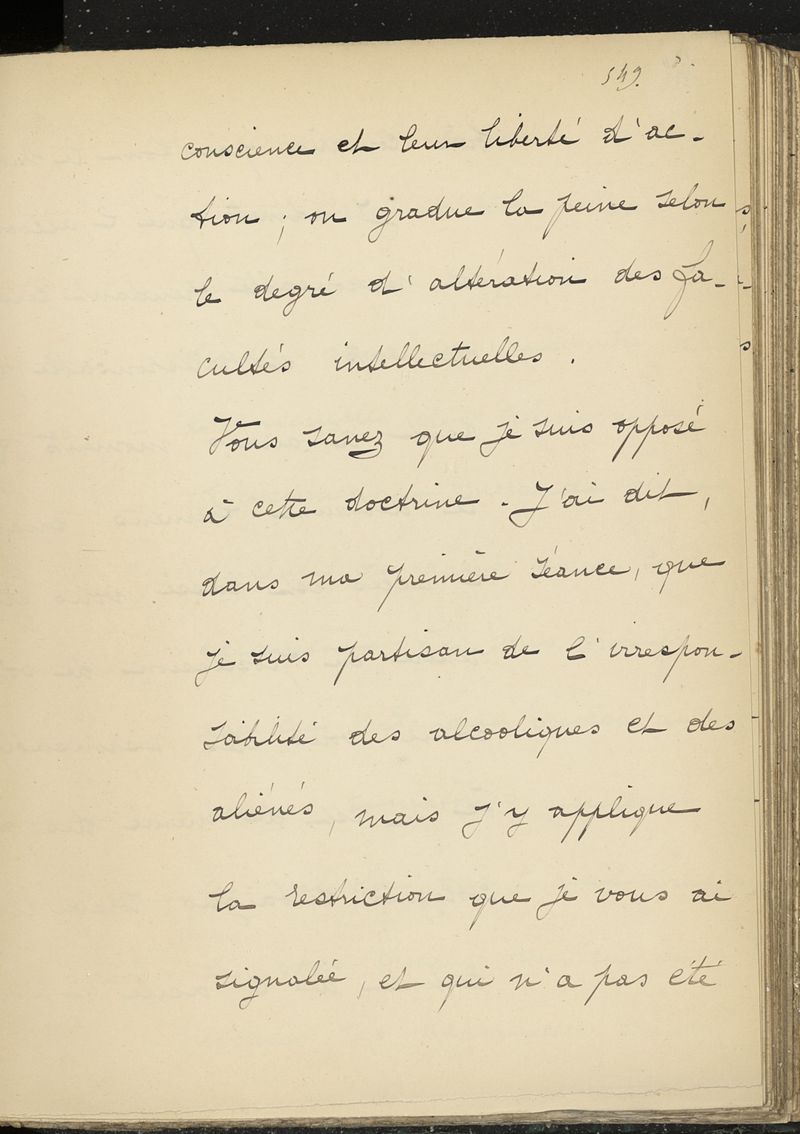 549.
conscience et leur liberté d'ac-
tion ; on gradue la peine selon
le degré d'altération des fa-
cultés intellectuelles.
Vous savez que je suis opposé
à cette doctrine. J'ai dit,
dans ma première séance, que
je suis partisan de l'irrespon-
sabilité des alcooliques et des
aliénés, mais j'y applique
la restriction que je vous ai
signalée, et qui n'a pas été